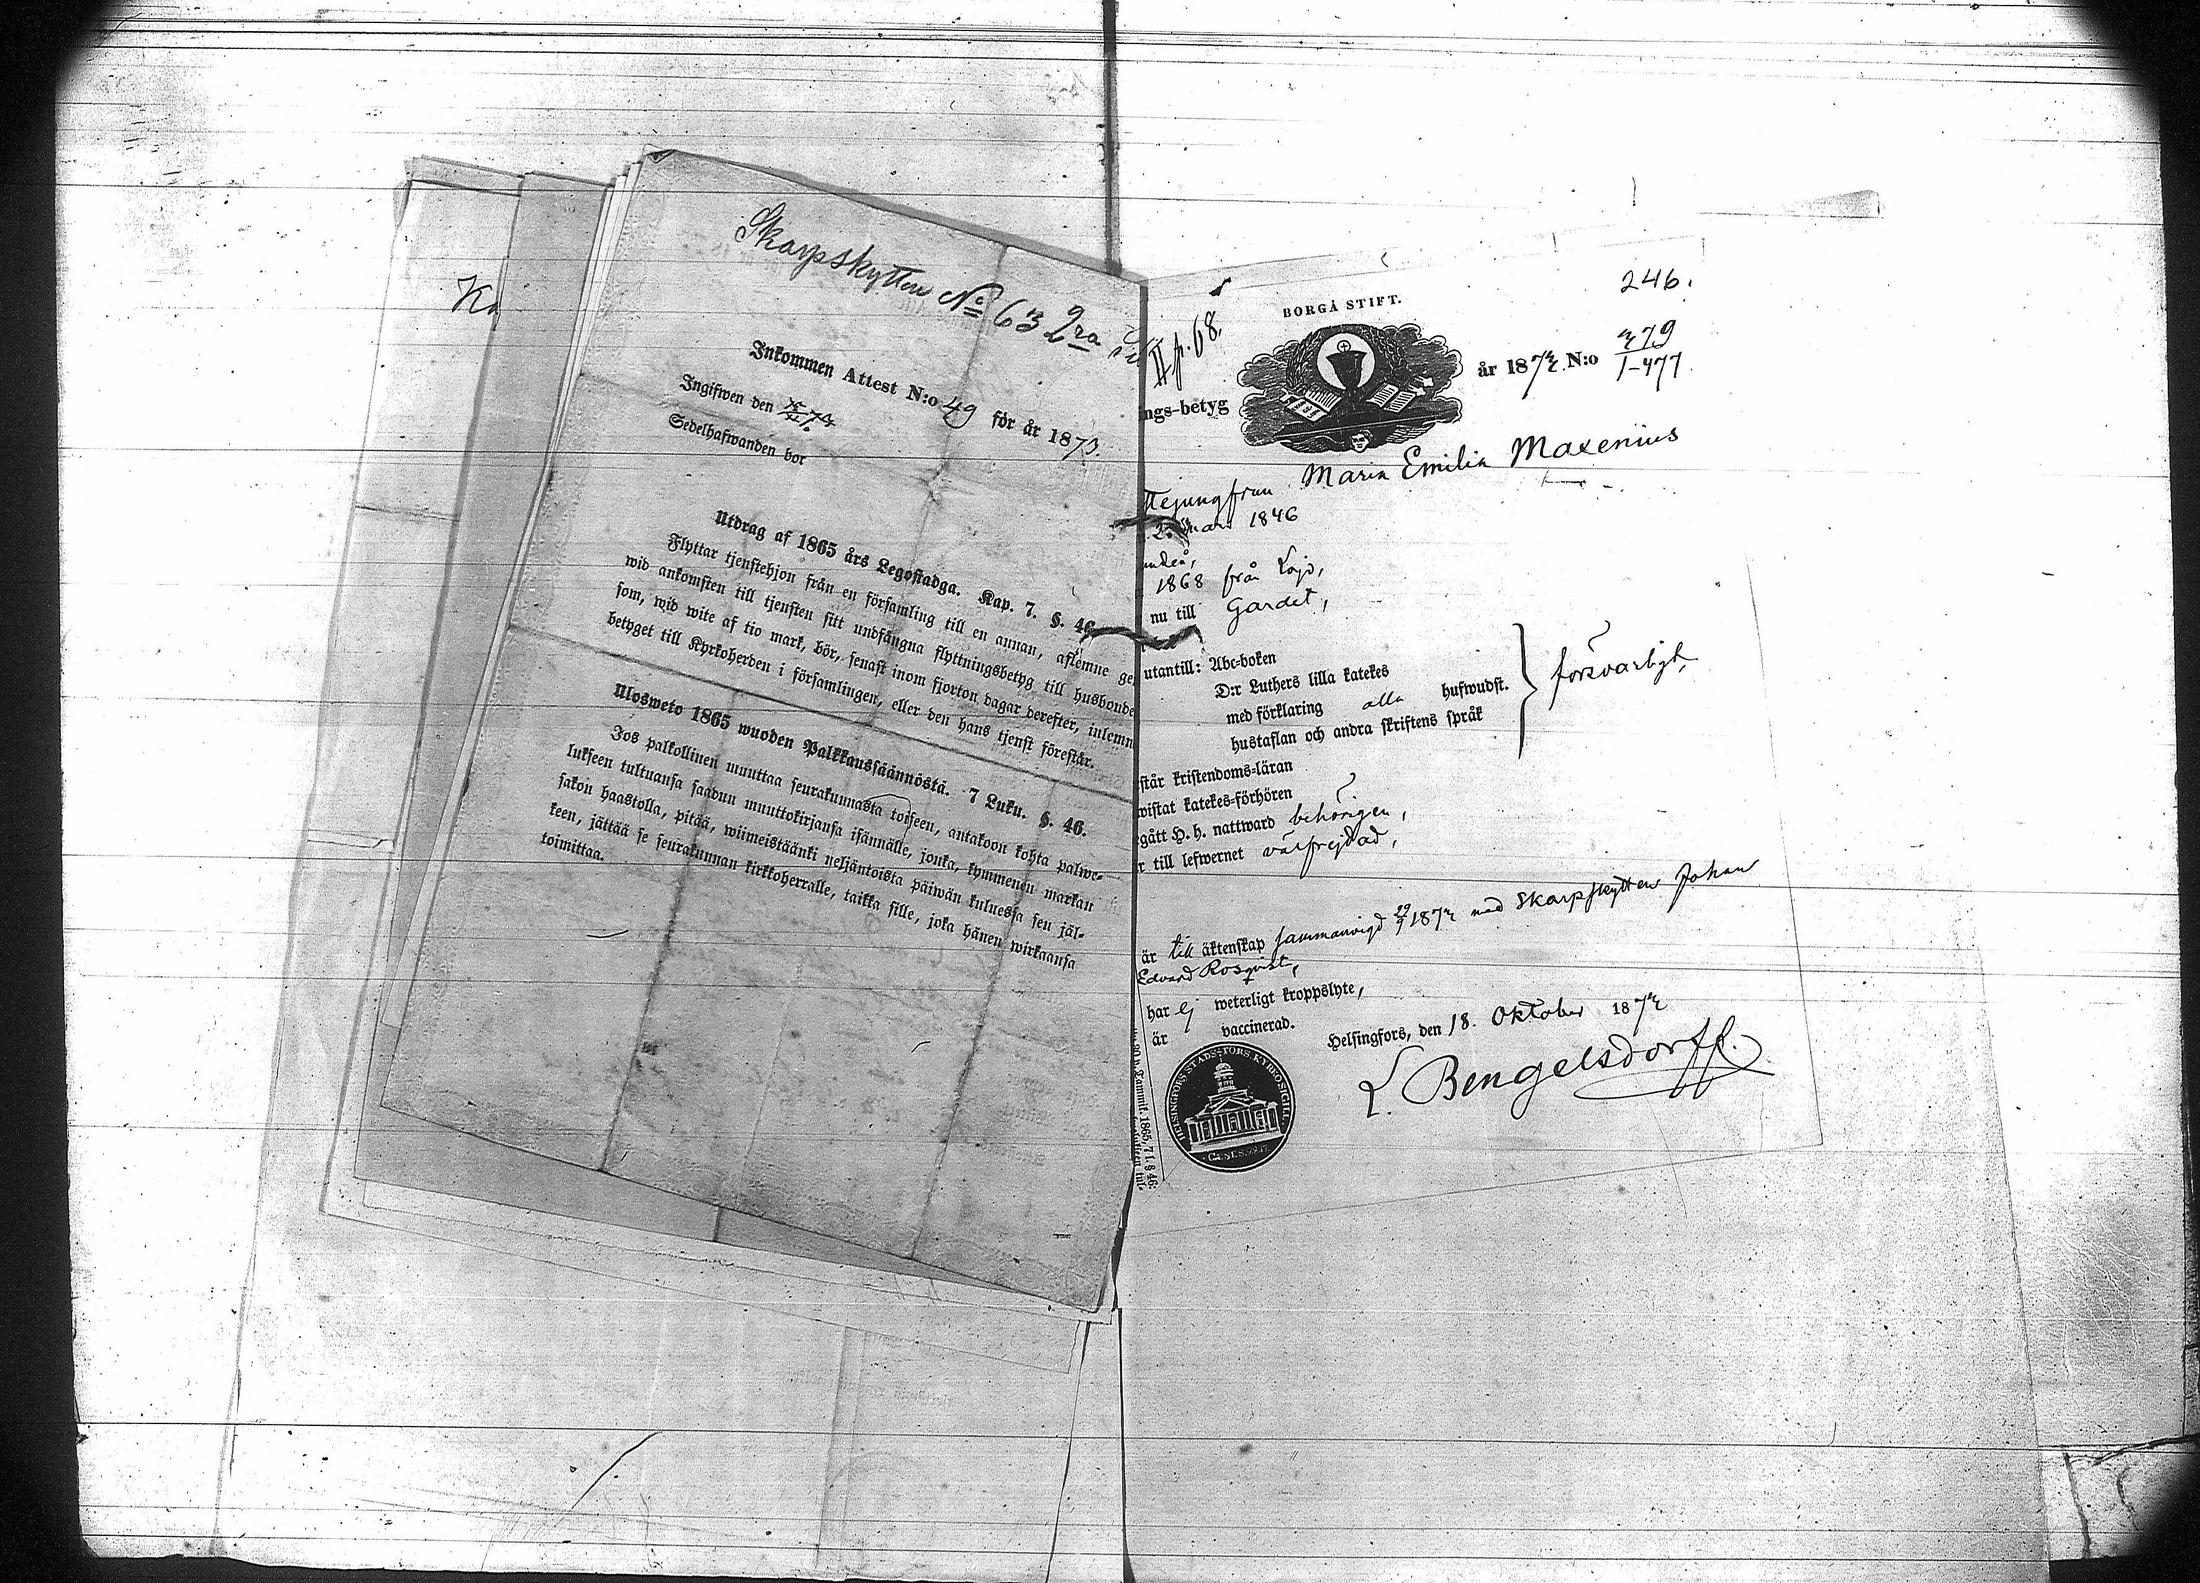 Ka
Skarpskytten No 63 2ra
Inkommen Attest N:o 49 för år 1873.
Ingifwen den
Sedelhafwanden bor
Utdrag af 1865 års Legostadga. Kap. 7. §. 46.
Flyttar tjenstehjon från en församling till en annan, aflemne ge-
wid ankomsten till tjensten sitt undfångna flyttningsbetyg till husbonde
som, wid wite af tio mark, bör, senast inom fjorton dagar derefter, inlemn
betyget till Kyrkoherden i församlingen, eller den hans tjenst förestår.
Ulosweto 1865 wuoden Palkkaussäännöstä. 7 Luku. §. 46.
Jos palkollinen muuttaa seurakunnasta toiseen, antakoon kohta palwe-
lukseen tultuansa saadun muuttokirjansa isännälle, jonka, kymmenen markan
sakon haastolla, pitää, wiimeistäänki neljäntoista päiwän kuluessa sen jäl-
keen, jättää se seurakunnan kirkkoherralle, taikka sille, joka hänen wirkaansa
toimittaa.
246.
BORGÅ STIFT.
II p. 68.
ngs-betyg
år 1872 N:o 279
I-477
tejungfrun Maria Emilia Maxenius
2 mars 1846
1868 från Lojo,
nu till Gardet,
utantill: Abc-boken
D:r Luthers lilla katekes
med förklaring alla hufwudst.
hustaflan och andra skriftens språk
försvarligt,
står kristendoms-läran
wistat katekes-förhören
gått H. h. nattward behörigen,
r till lefwernet välfrejdad,
är till äktenskap sammanvigd 29/9 1872 med Skarpskytten Johan
Edvard Rosqvist,
har ej weterligt kroppslyte,
är vaccinerad.
Helsingfors, den 18. Oktober 1872
L. Bengelsdorff.
HELSINGFORS STADS-FÖRS. KYRKOSIGILL